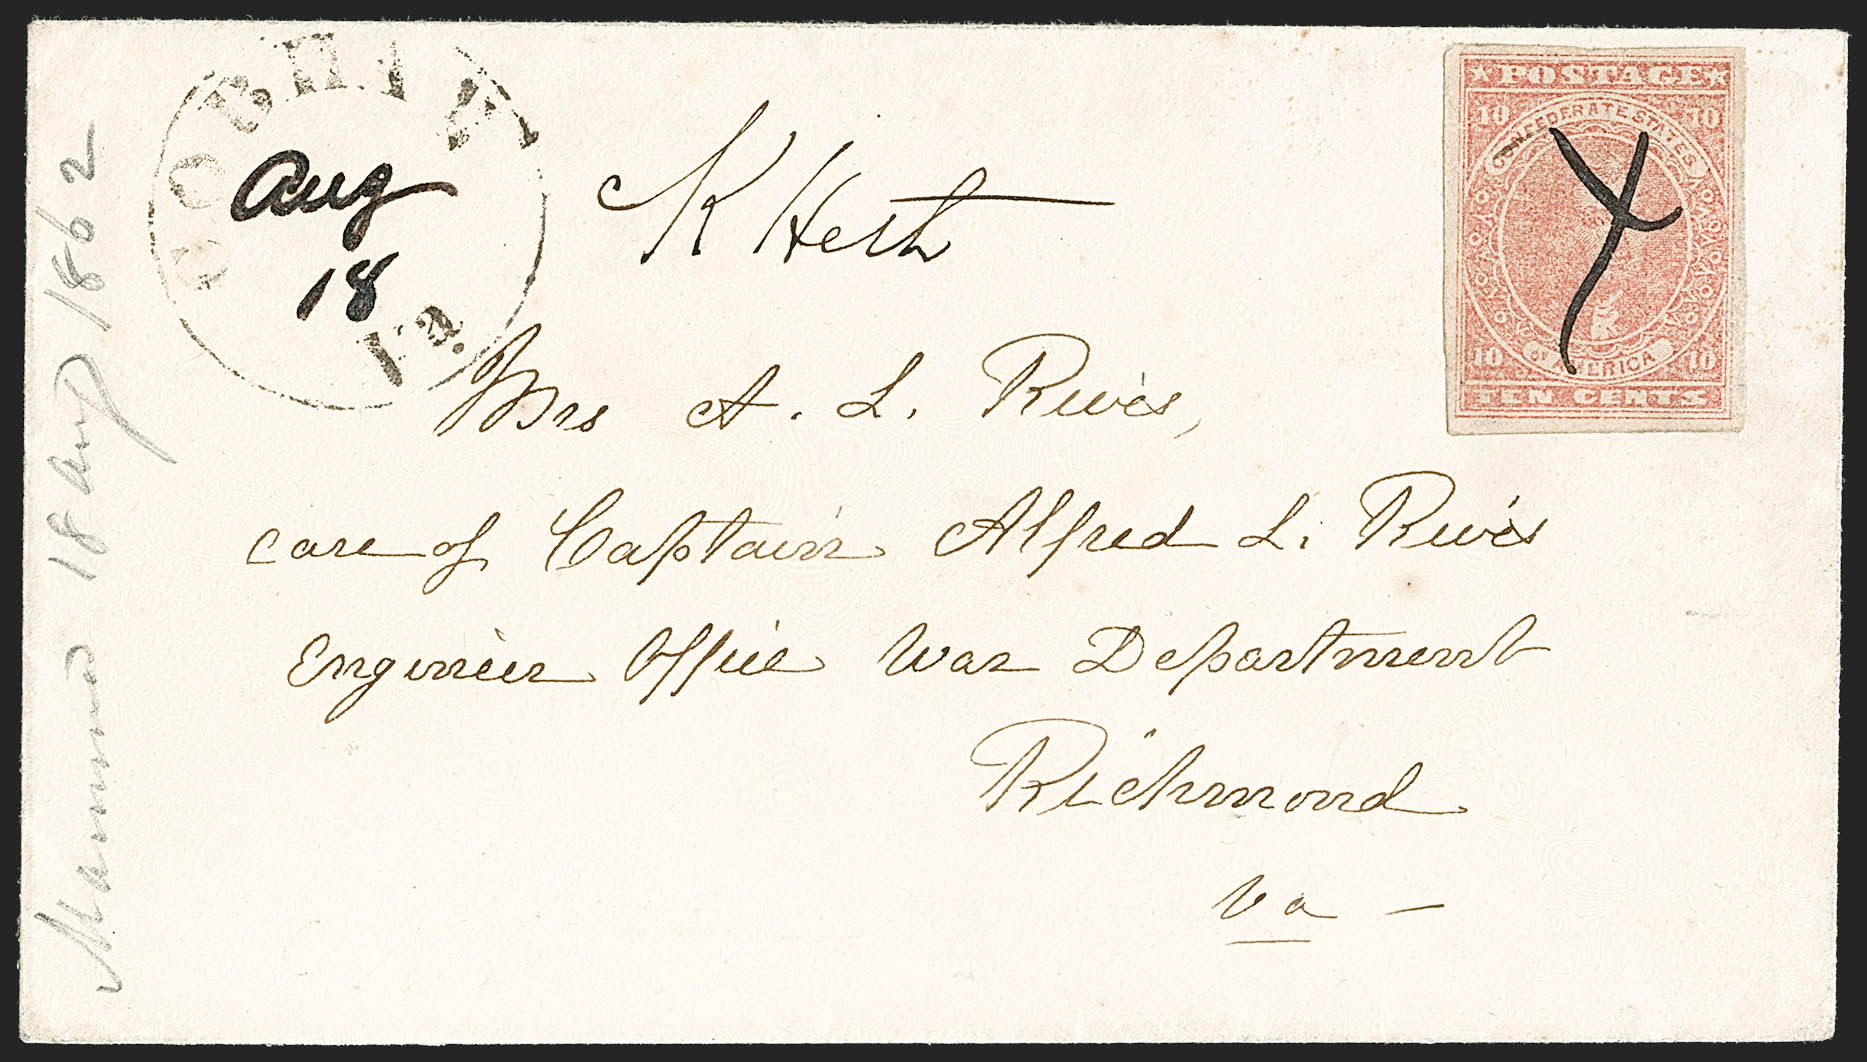 COBHAM
Aug
18
Va.
K Heth
★POSTAGE★
10 10
CONFEDERATE STATES
OF AMERICA
10 10
TEN CENTS
Mrs A. L. Rives,
care of Captain Alfred L. Rives
Engineer Office War Department
Richmond
Va -
18 Aug 1862